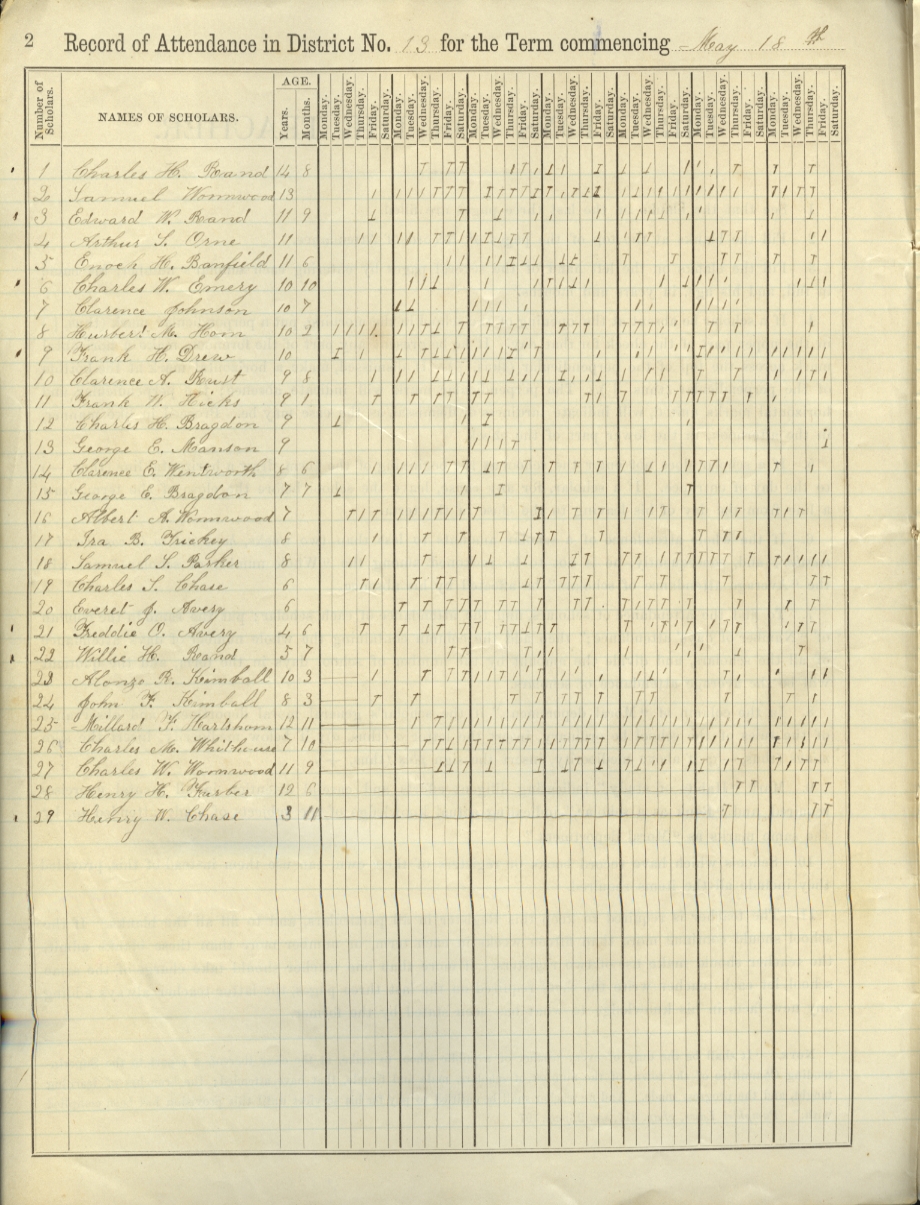 2 Record of Attendance in District No. 13 for the Term commencing May 18th
Number of Scholars. NAMES OF SCHOLARS. AGE. Years. Months. Monday. Tuesday. Wednesday. Thursday. Friday. Saturday. Monday. Tuesday. Wednesday. Thursday. Friday. Saturday. Monday. Tuesday. Wednesday. Thursday. Friday. Saturday. Monday. Tuesday. Wednesday. Thursday. Friday. Saturday. Monday. Tuesday. Wednesday. Thursday. Friday. Saturday. Monday. Tuesday. Wednesday. Thursday. Friday. Saturday. Monday. Tuesday. Wednesday. Thursday. Friday. Saturday.
1 Charles H. Rand 14 8
2 Samuel Wormwood 13
3 Edward W. Rand 11 9
4 Arthur S. Orne 11
5 Enoch H. Banfield 11 6
6 Charles W. Emery 10 10
7 Clarence Johnson 10 7
8 Hurbert M. Hom 10 2
9 Frank H. Drew 10
10 Clarence A. Rust 9 8
11 Frank W. Hicks 9 1
12 Charles H. Bragdon 9
13 George E. Manson 9
14 Clarence E. Wentworth 8 6
15 George E. Bragdon 7 7
16 Albert A. Wormwood 7
17 Ira B. Trickey 8
18 Samuel S. Parker 8
19 Charles S. Chase 6
20 Everet J. Avery 6
21 Freddie O. Avery 4 6
22 Willie H. Rand 5 7
23 Alonzo R. Kimball 10 3
24 John F. Kimball 8 3
25 Millard F. Hartshorn 12 11
26 Charles M. Whithouse 7 10
27 Charles W. Wormwood 11 9
28 Henry H. Furber 12 6
29 Henry W. Chase 3 11